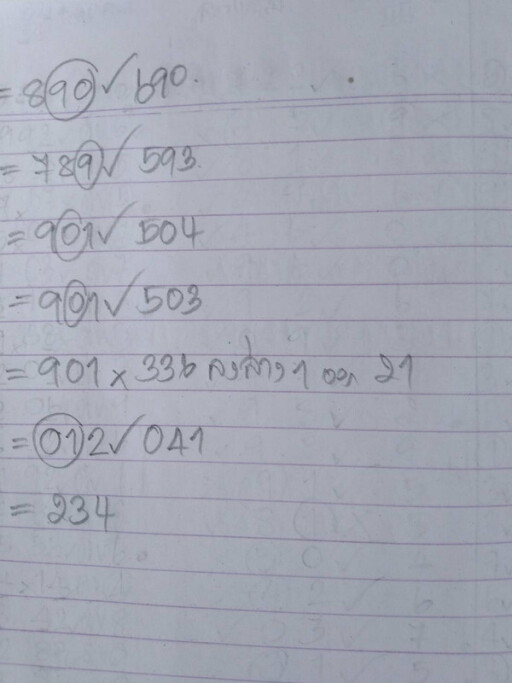 = 890 ✓ 690.
= 789 ✓ 593.
= 901 ✓ 504
= 901 ✓ 503
= 901 × 336 ลงล่าง 1 ออก 21
= 012 ✓ 041
= 234